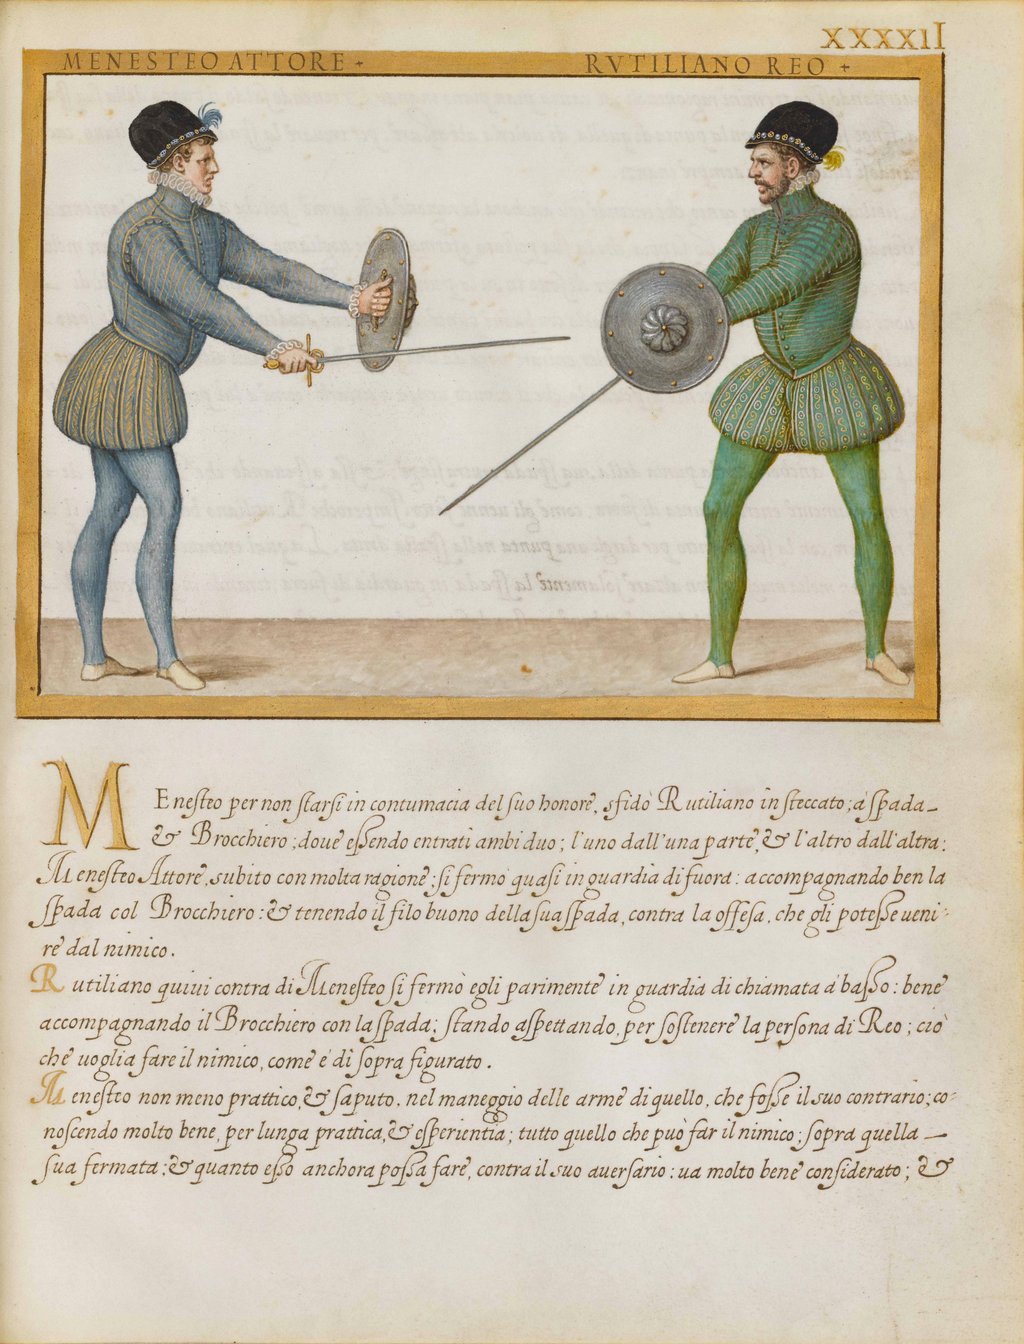 XXXXII
MENESTEO ATTORE + RVTILIANO REO +
MEnesteo per non starsi in contumacia del suo honore, sfidò Rutiliano in steccato; à spada_
& Brocchiero; doue essendo entrati ambi duo; l'uno dall'una parte, & l'altro dall'altra;
Menesteo Attore, subito con molta ragione; si fermò quasi in guardia di fuora: accompagnando ben la
spada col Brocchiero: & tenendo il filo buono della sua spada, contra la offesa, che gli potesse ueni-
re dal nimico.
Rutiliano quiui contra di Menesteo si fermò egli parimente in guardia di chiamata à basso: bene
accompagnando il Brocchiero con la spada; stando aspettando, per sostenere la persona di Reo; ciò
che uoglia fare il nimico, come è di sopra figurato.
Menesteo non meno prattico, & saputo, nel maneggio delle arme di quello, che fosse il suo contrario; co-
noscendo molto bene, per lunga prattica, & esperientia; tutto quello che può far il nimico; sopra quella _
sua fermata; & quanto esso anchora possa fare, contra il suo auersario: ua molto bene considerato; &